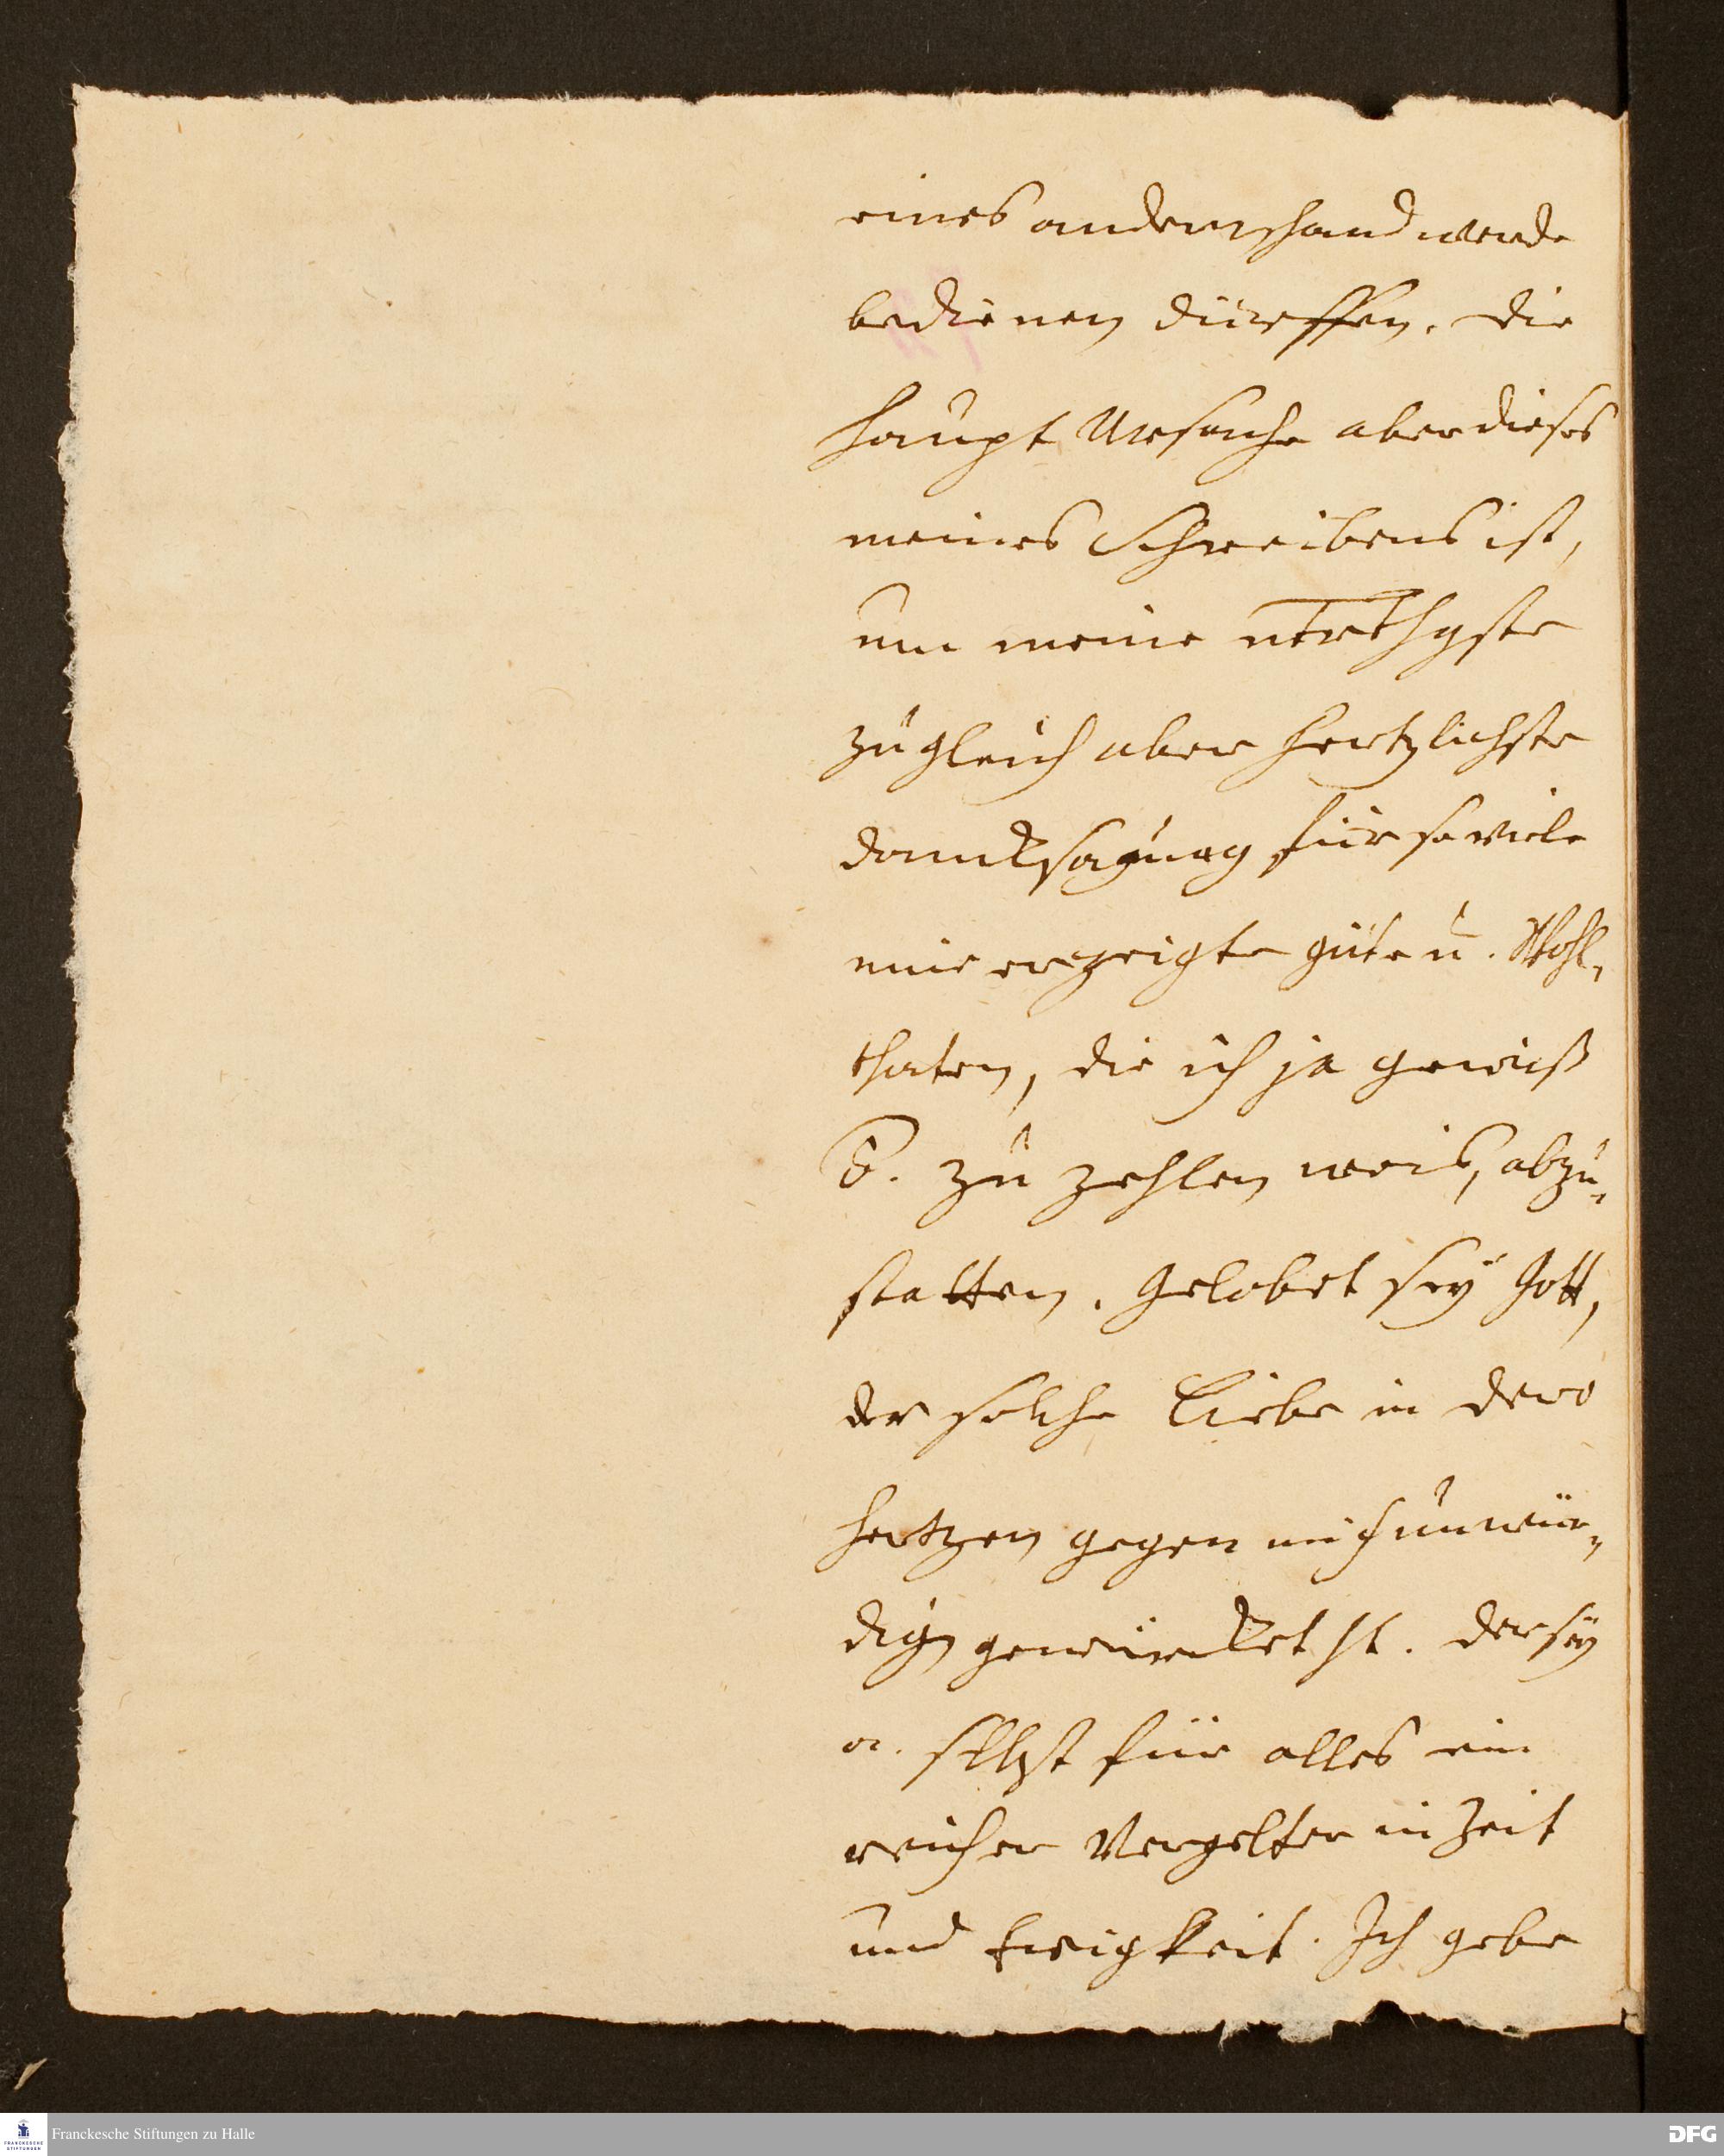 eines andern hand werde
bedienen dürffen. Die
haupt Ursache aber dieses
meines Schreibens ist,
um meine untrthgste
zugleich aber hertzlichste
dancksagung für so viele
mir erzeigte güte u. Wohl-
thaten, die ich ja gewiß
zu zehlen weis, abzu-
statten. Gelobet sey Gott,
der solche Liebe in dero
hertzen gegen mich unwür-
digen gewürcket ht. der sey
selbst für alles ein
reicher Vergelter in Zeit
und Ewigkeit. Ich gebe
Franckesche Stiftungen zu Halle
FRANCKESCHE
STIFTUNGEN
DFG